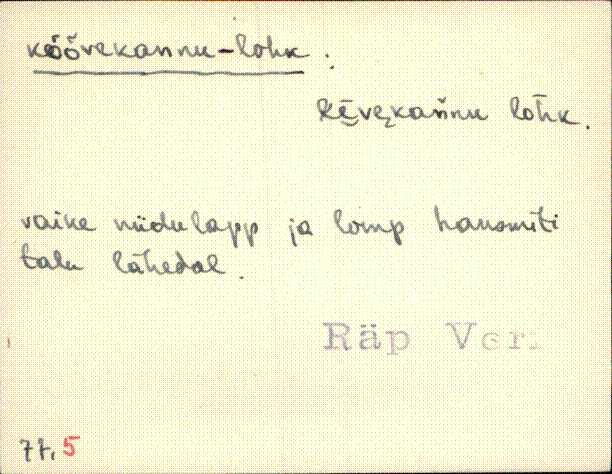 kõõvekannu-lohk.
kēvekan̄nu lohk.
väike niidulapp ja lomp hansmiti
talu lähedal.
Räp Ver
77.5